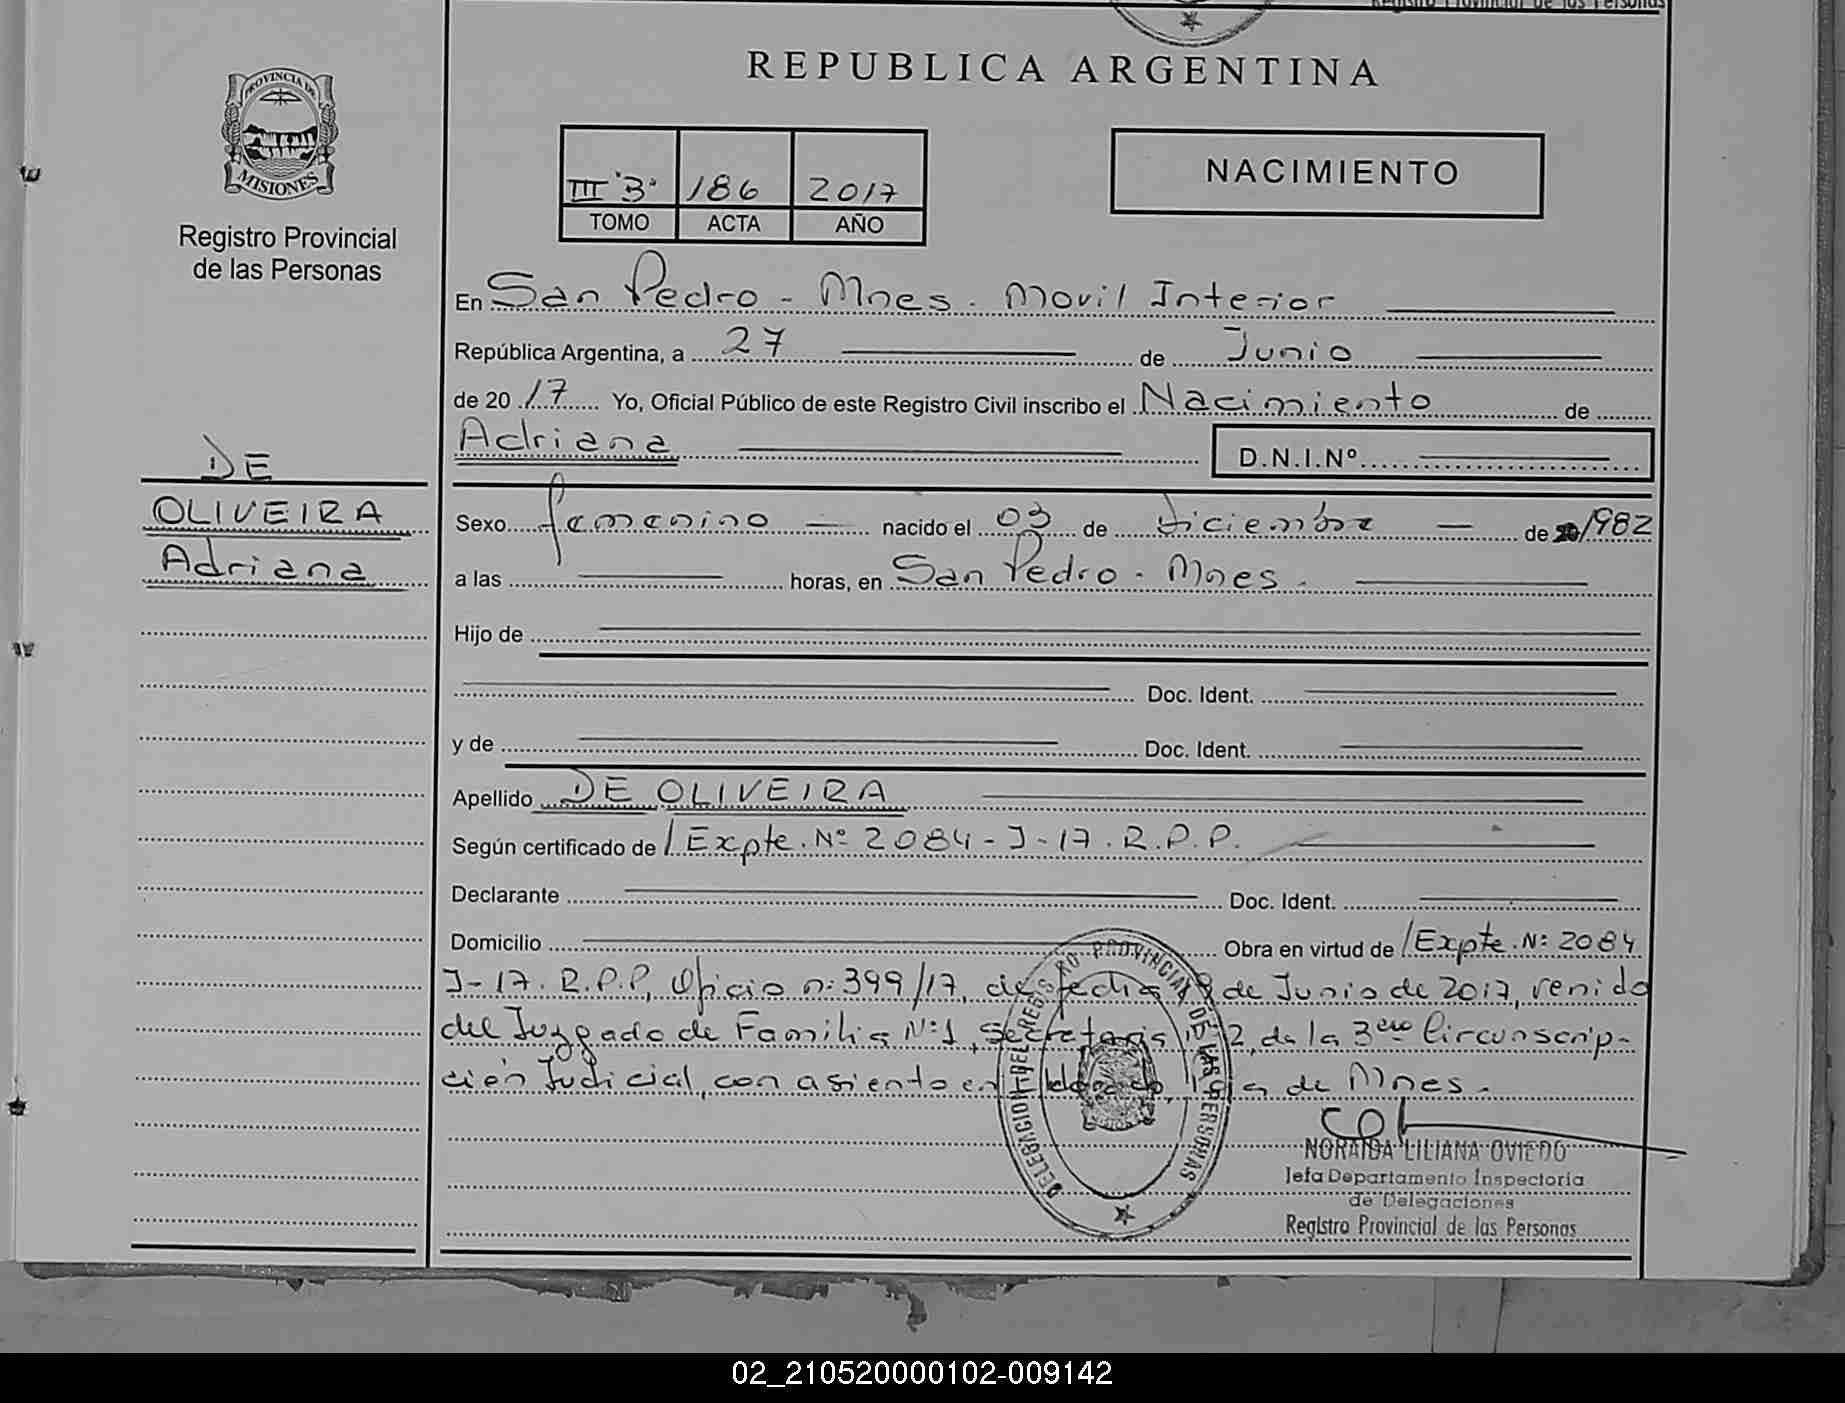 Registro Provincial de las Personas
REPUBLICA ARGENTINA
PROVINCIA DE
MISIONES
Registro Provincial
de las Personas
III "B" 186 2017
TOMO ACTA AÑO
NACIMIENTO
En San Pedro - Mnes. Movil Interior
República Argentina, a 27 de Junio
de 20 17 Yo, Oficial Público de este Registro Civil inscribo el Nacimiento de
Adriana D.N.I.Nº
DE
OLIVEIRA
Adriana
Sexo femenino nacido el 03 de diciembre de 1982
a las horas, en San Pedro - Mnes.
Hijo de
Doc. Ident.
y de Doc. Ident.
Apellido DE OLIVEIRA
Según certificado de / Expte. Nº 2084 - J - 17. R.P.P.
Declarante Doc. Ident.
Domicilio Obra en virtud de / Expte. Nº 2084
J-17. R.P.P, Oficio nº 399/17, de fecha de Junio de 2017, venido
del Juzgado de Familia Nº 1, Secretaria nº 2, de la 3era Circunscrip-
ción Judicial, con asiento en de Mnes.
DELEGACION DEL REGISTRO PROVINCIAL DE LAS PERSONAS
NORAIDA LILIANA OVIEDO
Jefa Departamento Inspectoria
de Delegaciones
Registro Provincial de las Personas
02_210520000102-009142